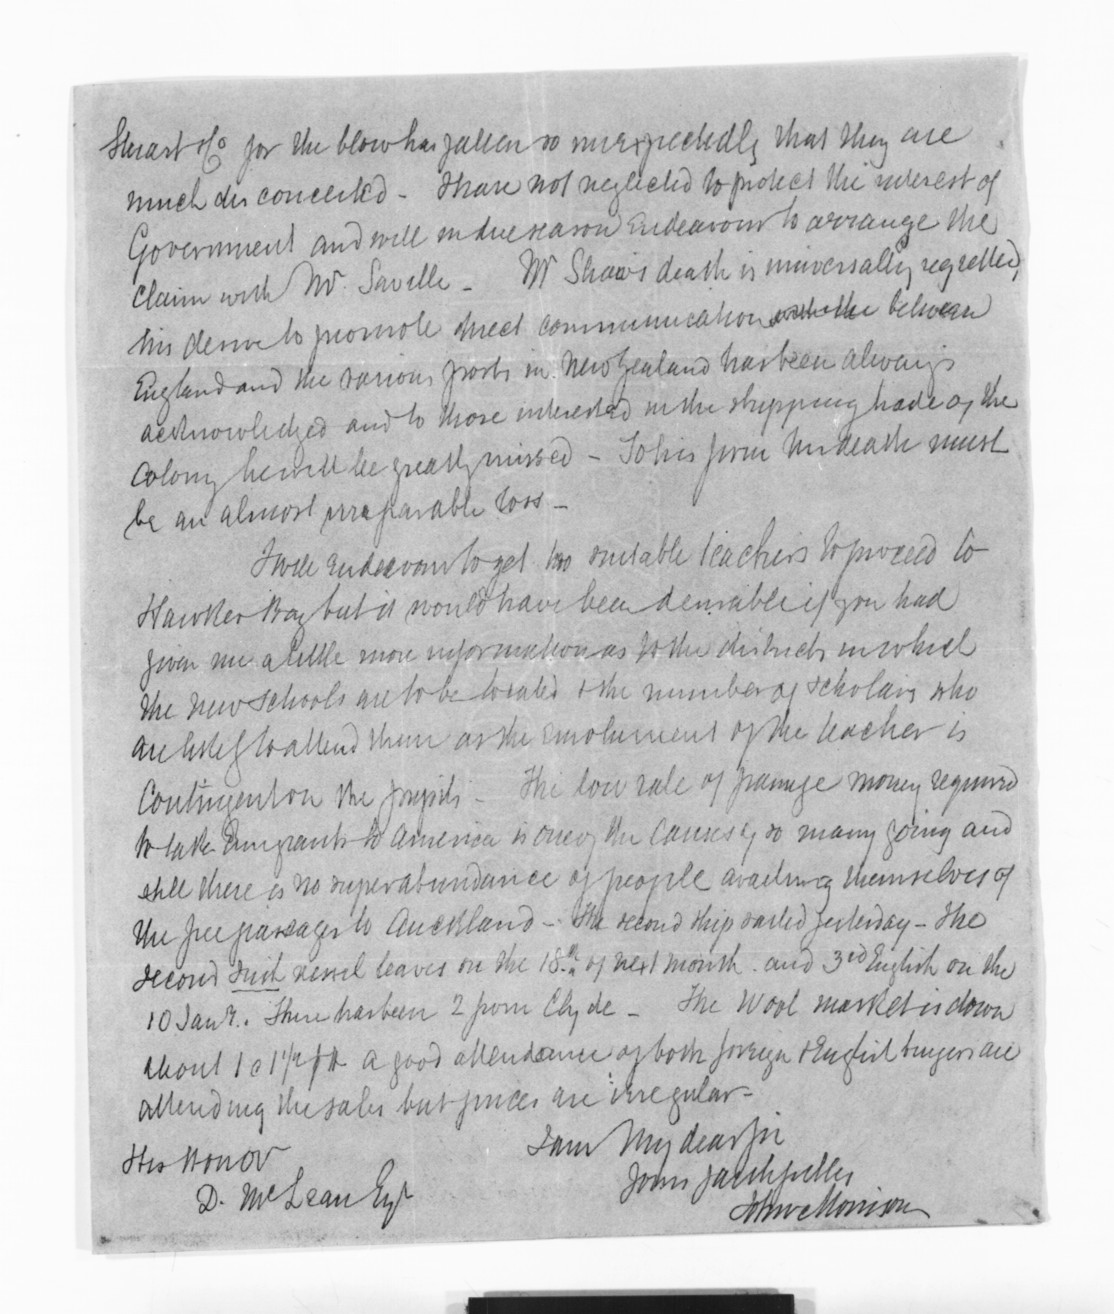 Stuart & Co for the blow has fallen so unexpectedly that they are
much disconcerted - I have not neglected to protect the interest of
Government and will in due season Endeavour to arrange the
claim with Mr. Saville - Mr Shaw's death is universally regretted,
his desire to promote direct communication between
England and the various ports in New Zealand has been always
acknowledged and to those interested in the shipping trade of the
Colony he will be greatly missed - To his firm his death must
be an almost irreparable loss -
I will Endeavour to get two suitable teachers to proceed to
Hawkes Bay but it would have been desirable if you had
given me a little more information as to the districts in which
the new schools are to be located & the number of scholars who
are likely to attend them as the Emolument of the teacher is
Contingent on the pupils - The low rate of passage money required
to take Emigrants to America is one of the causes of so many going and
still there is no superabundance of people availing themselves of
the free passages to Auckland - The second ship sailed yesterday - The
second Irish vessel leaves on the 18th of next month and 3rd English on the
10 Jany. There has been 2 from Clyde - The Wool market is down
about 1 @ 1½ a good attendance of both foreign & English buyers are
attending the sales but prices are irregular -
I am My dear Sir
His Honor Yours faithfully
D. McLean Esqr John Morrison